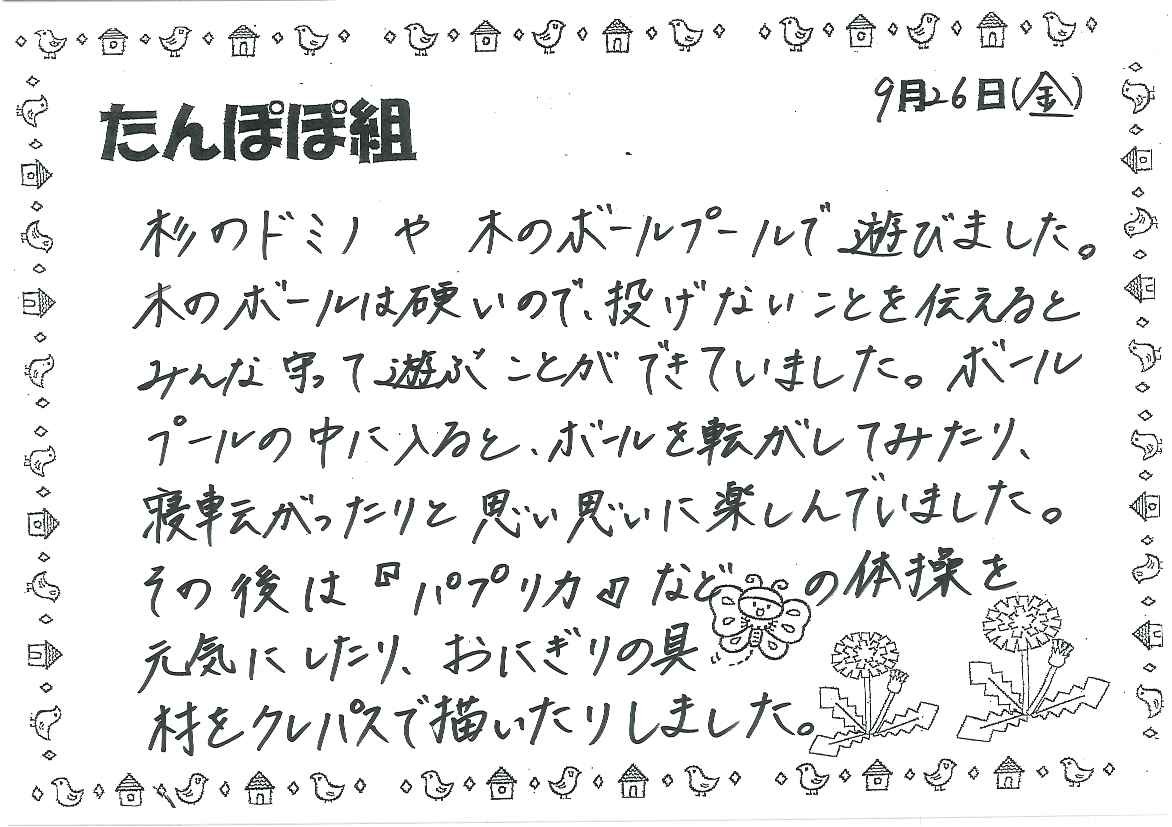 9月26日(金)
たんぽぽ組
杉のドミノや木のボールプールで遊びました。
木のボールは硬いので、投げないことを伝えると
みんな守って遊ぶことができていました。ボール
プールの中に入ると、ボールを転がしてみたり、
寝転がったりと思い思いに楽しんでいました。
その後は『パプリカ』などの体操を
元気にしたり、おにぎりの具
材をクレパスで描いたりしました。